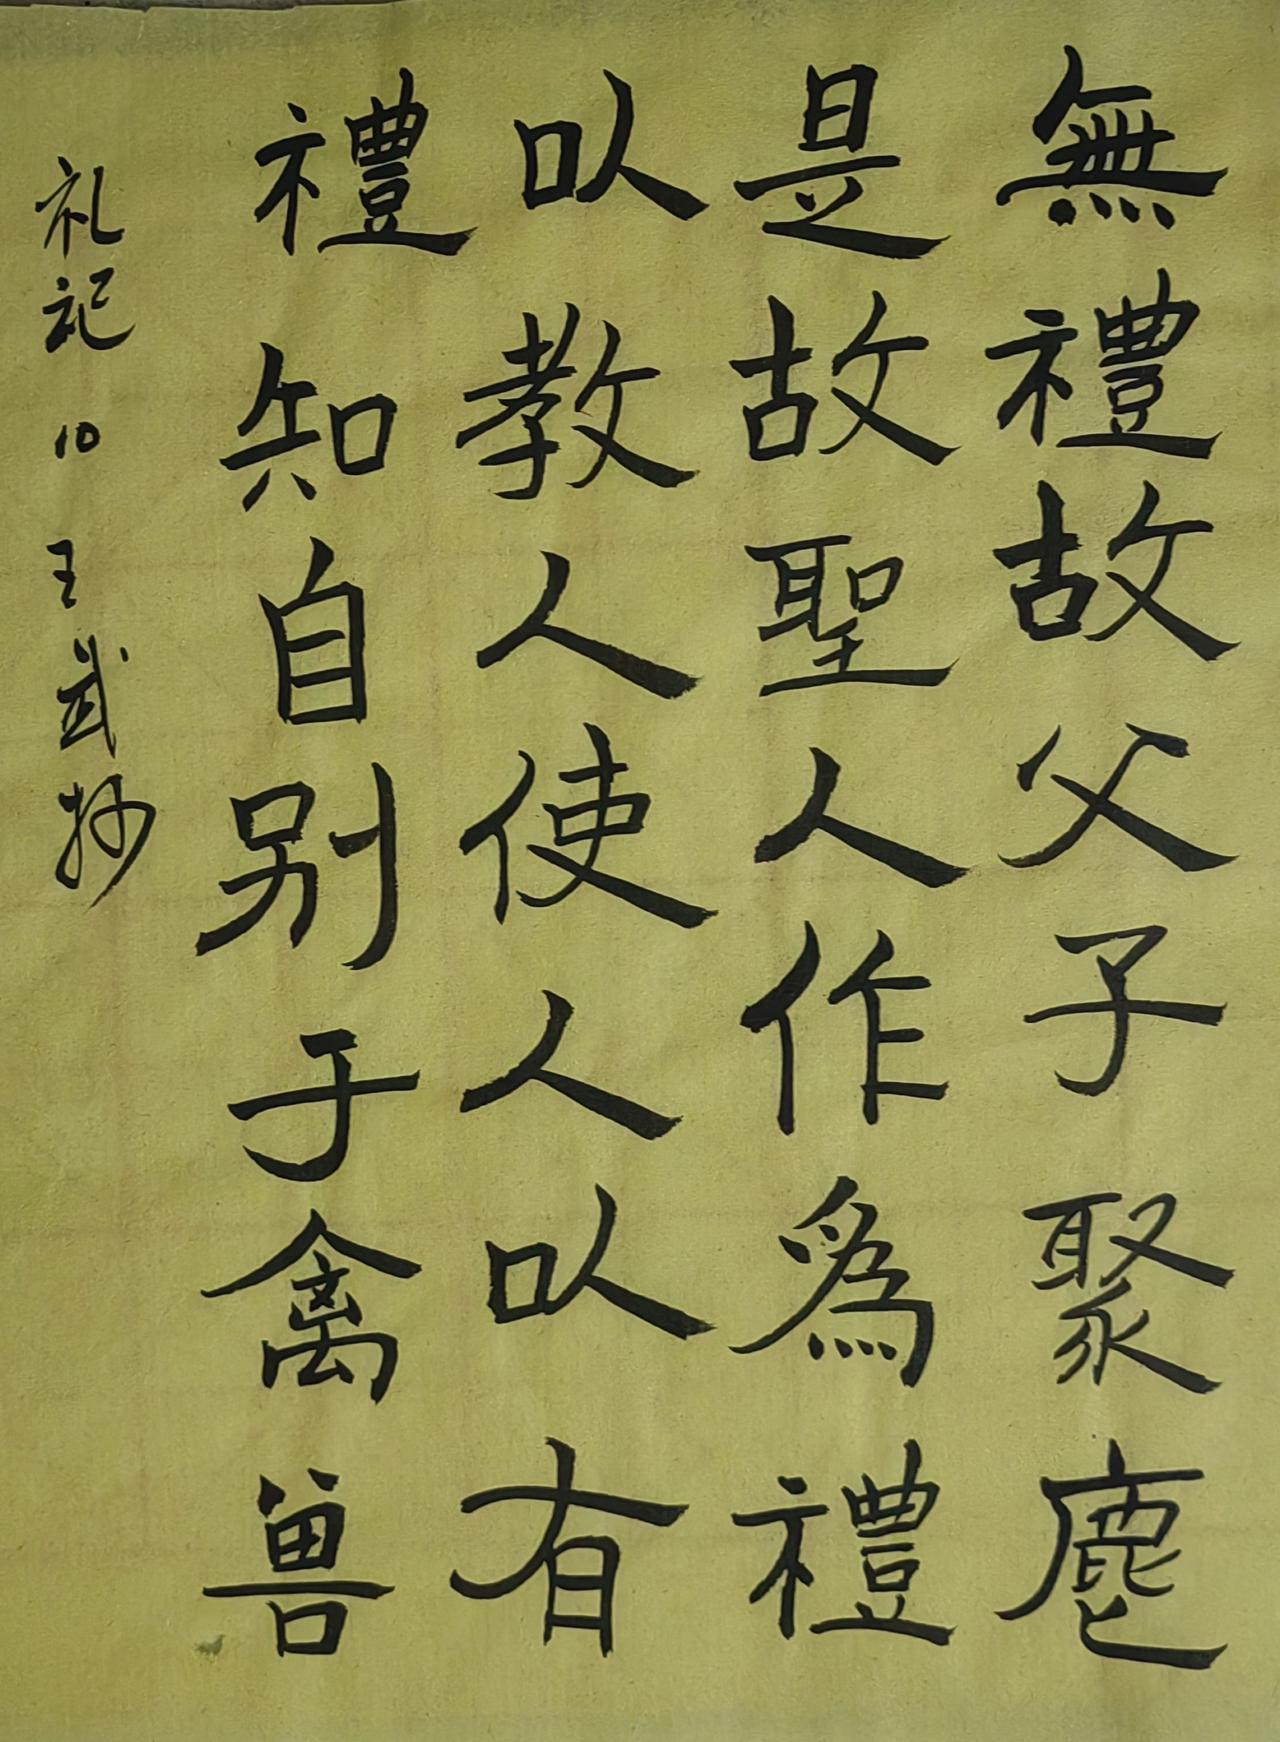 無禮故父子聚麀
是故聖人作爲禮
以教人使人以有
禮知自别于禽兽
礼记 10 王武抄